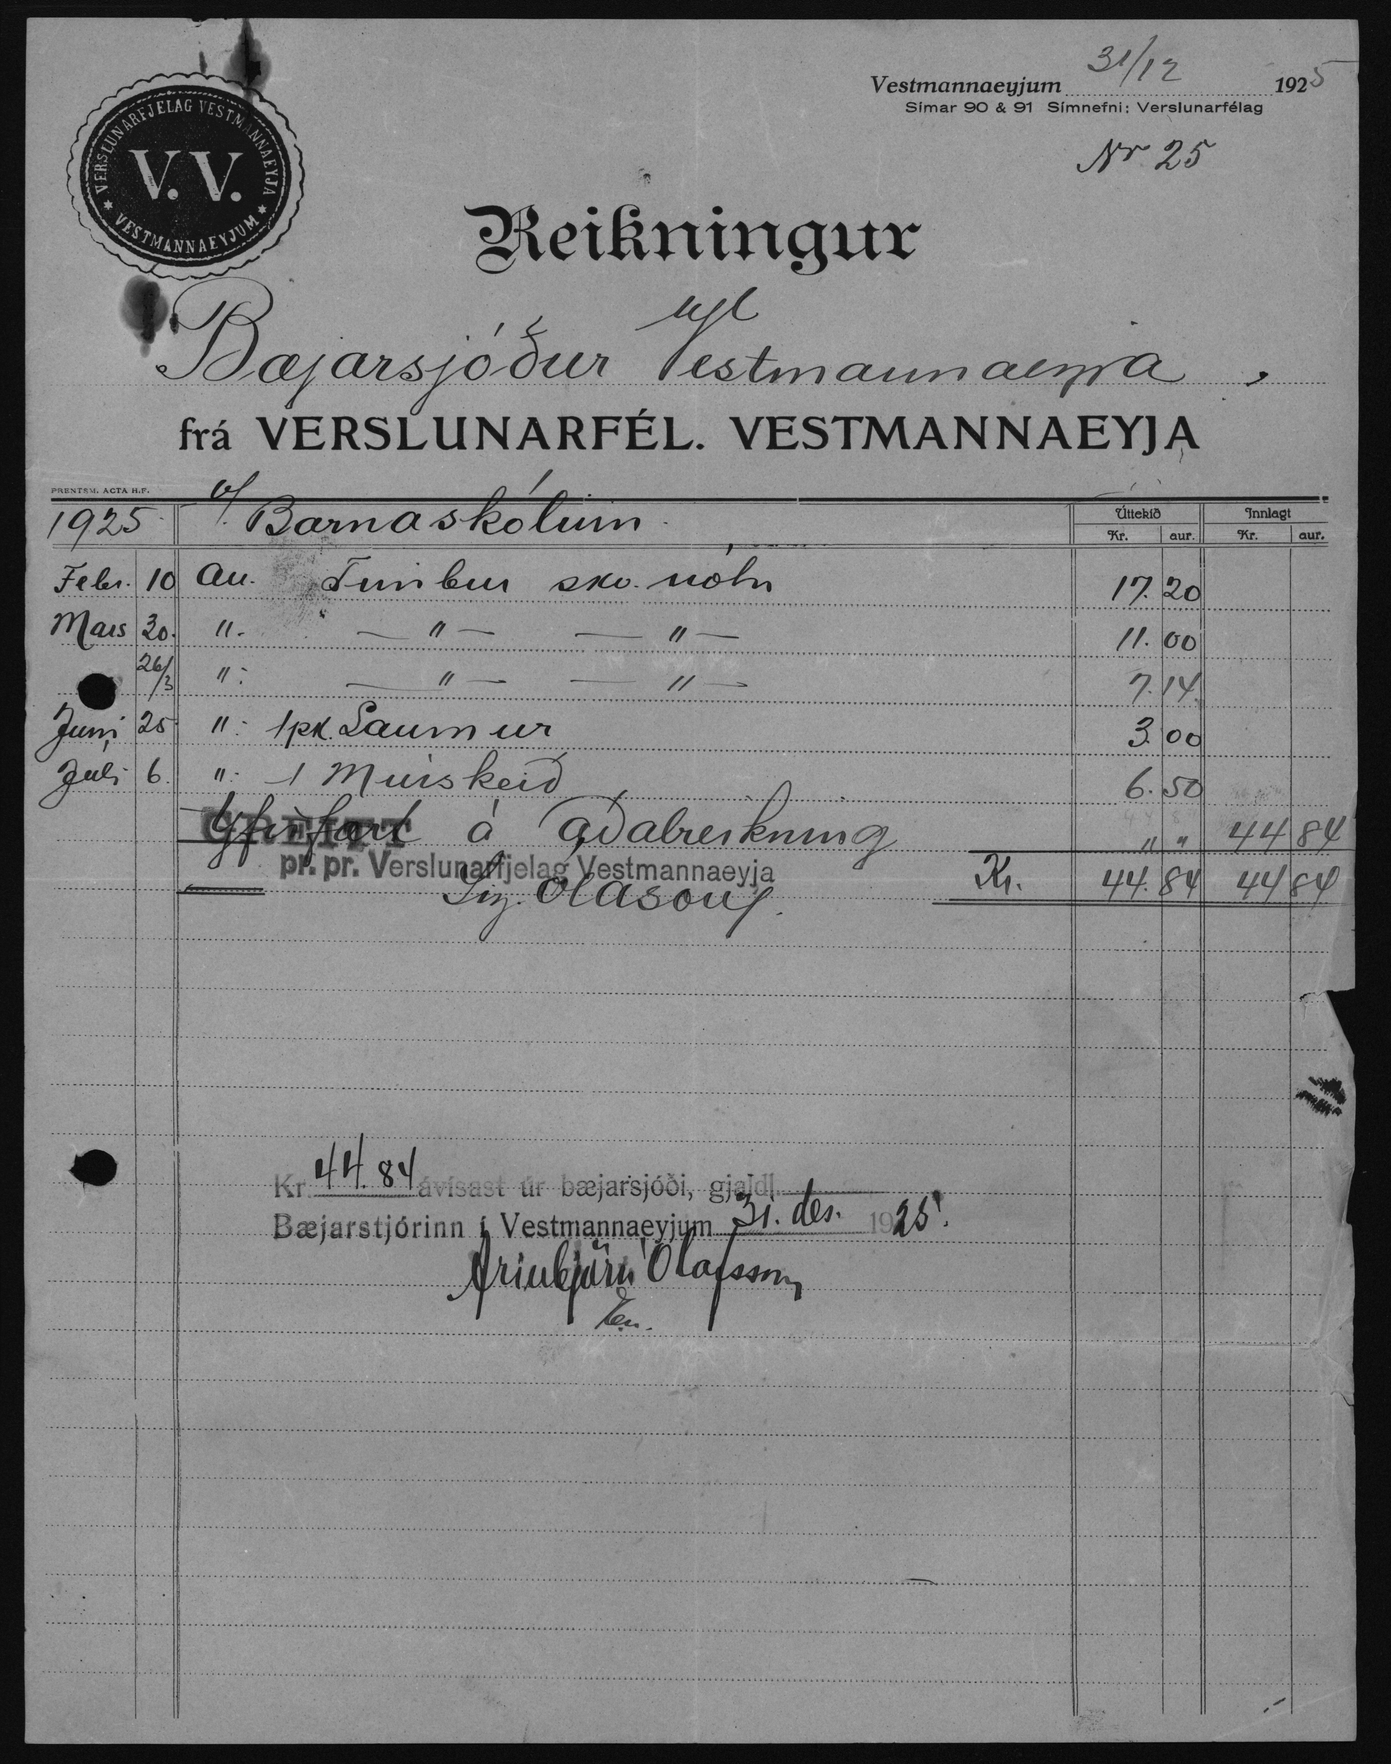 VERSLUNARFJELAG VESTMANNAEYJA
V. V.
* VESTMANNAEYJUM *
Vestmannaeyjum 31/12 1925
Símar 90 & 91 Símnefni: Verslunarfélag
Nr 25
Reikningur
Bæjarsjóður Vestmannaeyja
frá VERSLUNARFÉL. VESTMANNAEYJA
PRENTSM. ACTA H.F.
1925 v/. Barnaskólinn Úttekið Innlagt
Kr. aur. Kr. aur.
Febr. 10 Timbur skv. nótu 17.20
Mars 20. " — " — — " — 11.00
26/3 " — " — — " — 7.14
Juni 25 " 1 pk. Saumur 3.00
Juli 6. " 1 Múrskeið 6.50
GREITT
Yfirfært á aðalreikning " " 44 84
pr. pr. Verslunarfjelag Vestmannaeyja
Kr. 44.84 44 84
Ólason
Kr. 44.84 ávísast úr bæjarsjóði, gjaldl.
Bæjarstjórinn í Vestmannaeyjum 31. des. 1925.
Arinbjörn Ólafsson